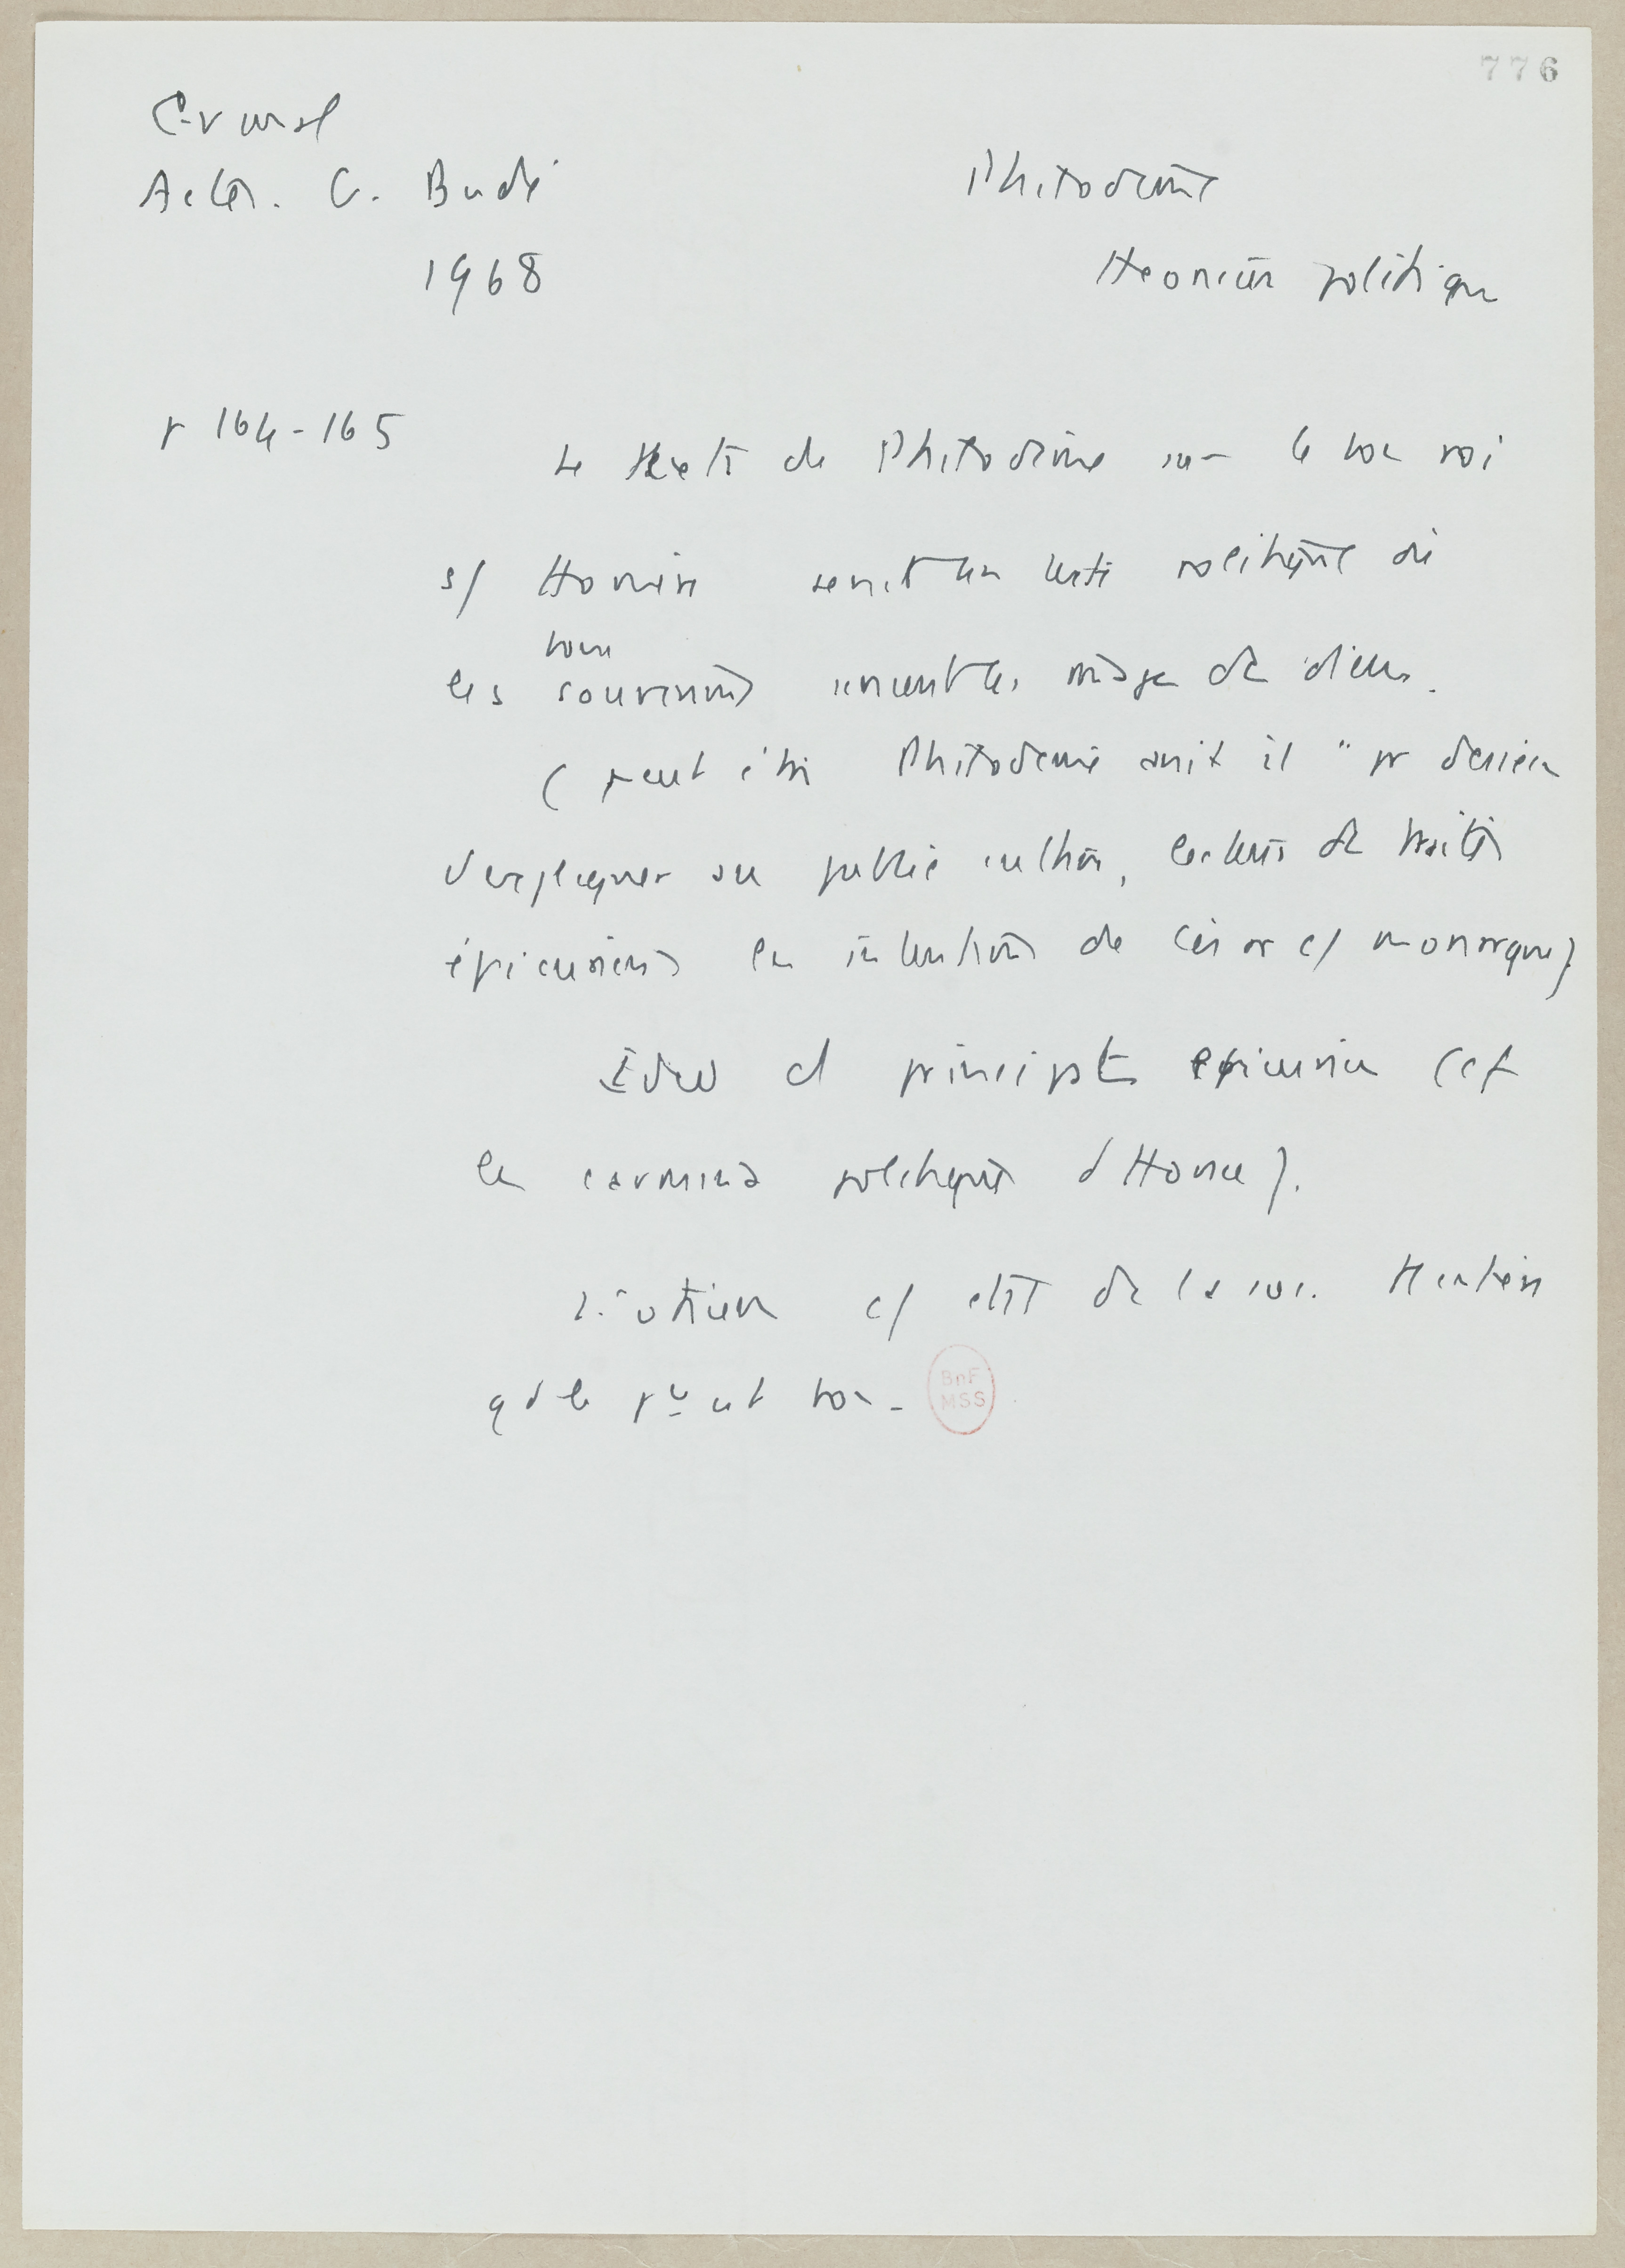 776
Grimal
Actes. C. Budé
1968
Philodème
théories politiques
p 164-165
Le texte de Philodème sur le bon roi
s/ Homère serait un texte politique où
bons
les souverains seraient les images des dieux.
(peut être Philodème avait il "pr dessein
d'expliquer au public cultivé, lecteurs de traités
épicuriens les intentions de César c/ monarque)
et principat épicurien (cf
les carmina politiques d'Horace).
c/ état de la soc.
q d le pv est bon.
BnF
MSS